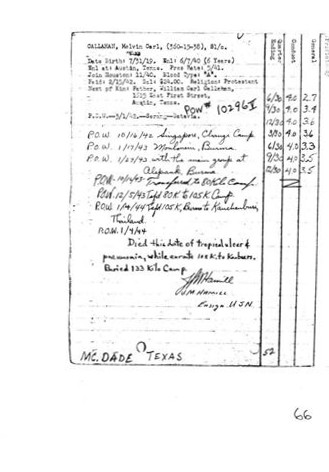 CALLAHAN, Melvin Carl, (360-15-38), S1/c.
Date Birth: 7/31/19. Enl: 6/7/40 (6 Years)
Enl at: Austin, Texas. Pros Rate: 5/41.
Join Houston: 11/40. Blood Type: "A".
Paid: 2/15/42. Col: $24.00. Religion: Protestant
Next of Kin: Father, William Carl Callahan,
1215 East First Street,
Austin, Texas.
POW# 10296I
P.O.W.-3/1/42--Serang-Batavia.
P.O.W. 10/16/42 Singapore, Changi Camp
P.O.W. 1/17/43 Moulmein, Burma
P.O.W. 1/27/43 with the main group at
Alepauk, Burma
P.O.W. 10/4/43 Transferred to 80 Kilo Camp
P.O.W. 12/5/43 Tsfd 80K to 105K Camp
P.O.W. 1/4/44 Tsfd 105K, Burma to Kanchanburi,
Thailand.
P.O.W. 1/4/44
Died this date of tropical ulcer &
pneumonia, while enroute 105K to Kanburi.
Buried 133 Kilo Camp.
JM Hamill
JM HAMILL
Ensign USN.
Quarter Ending
Conduct
General
6/30 4.0 2.7
9/30 4.0 3.4
12/30 4.0 3.6
3/30 4.0 3.6
6/30 4.0 3.3
9/30 4.0 3.5
12/30 4.0 3.5
52
MC. DADE, TEXAS
66